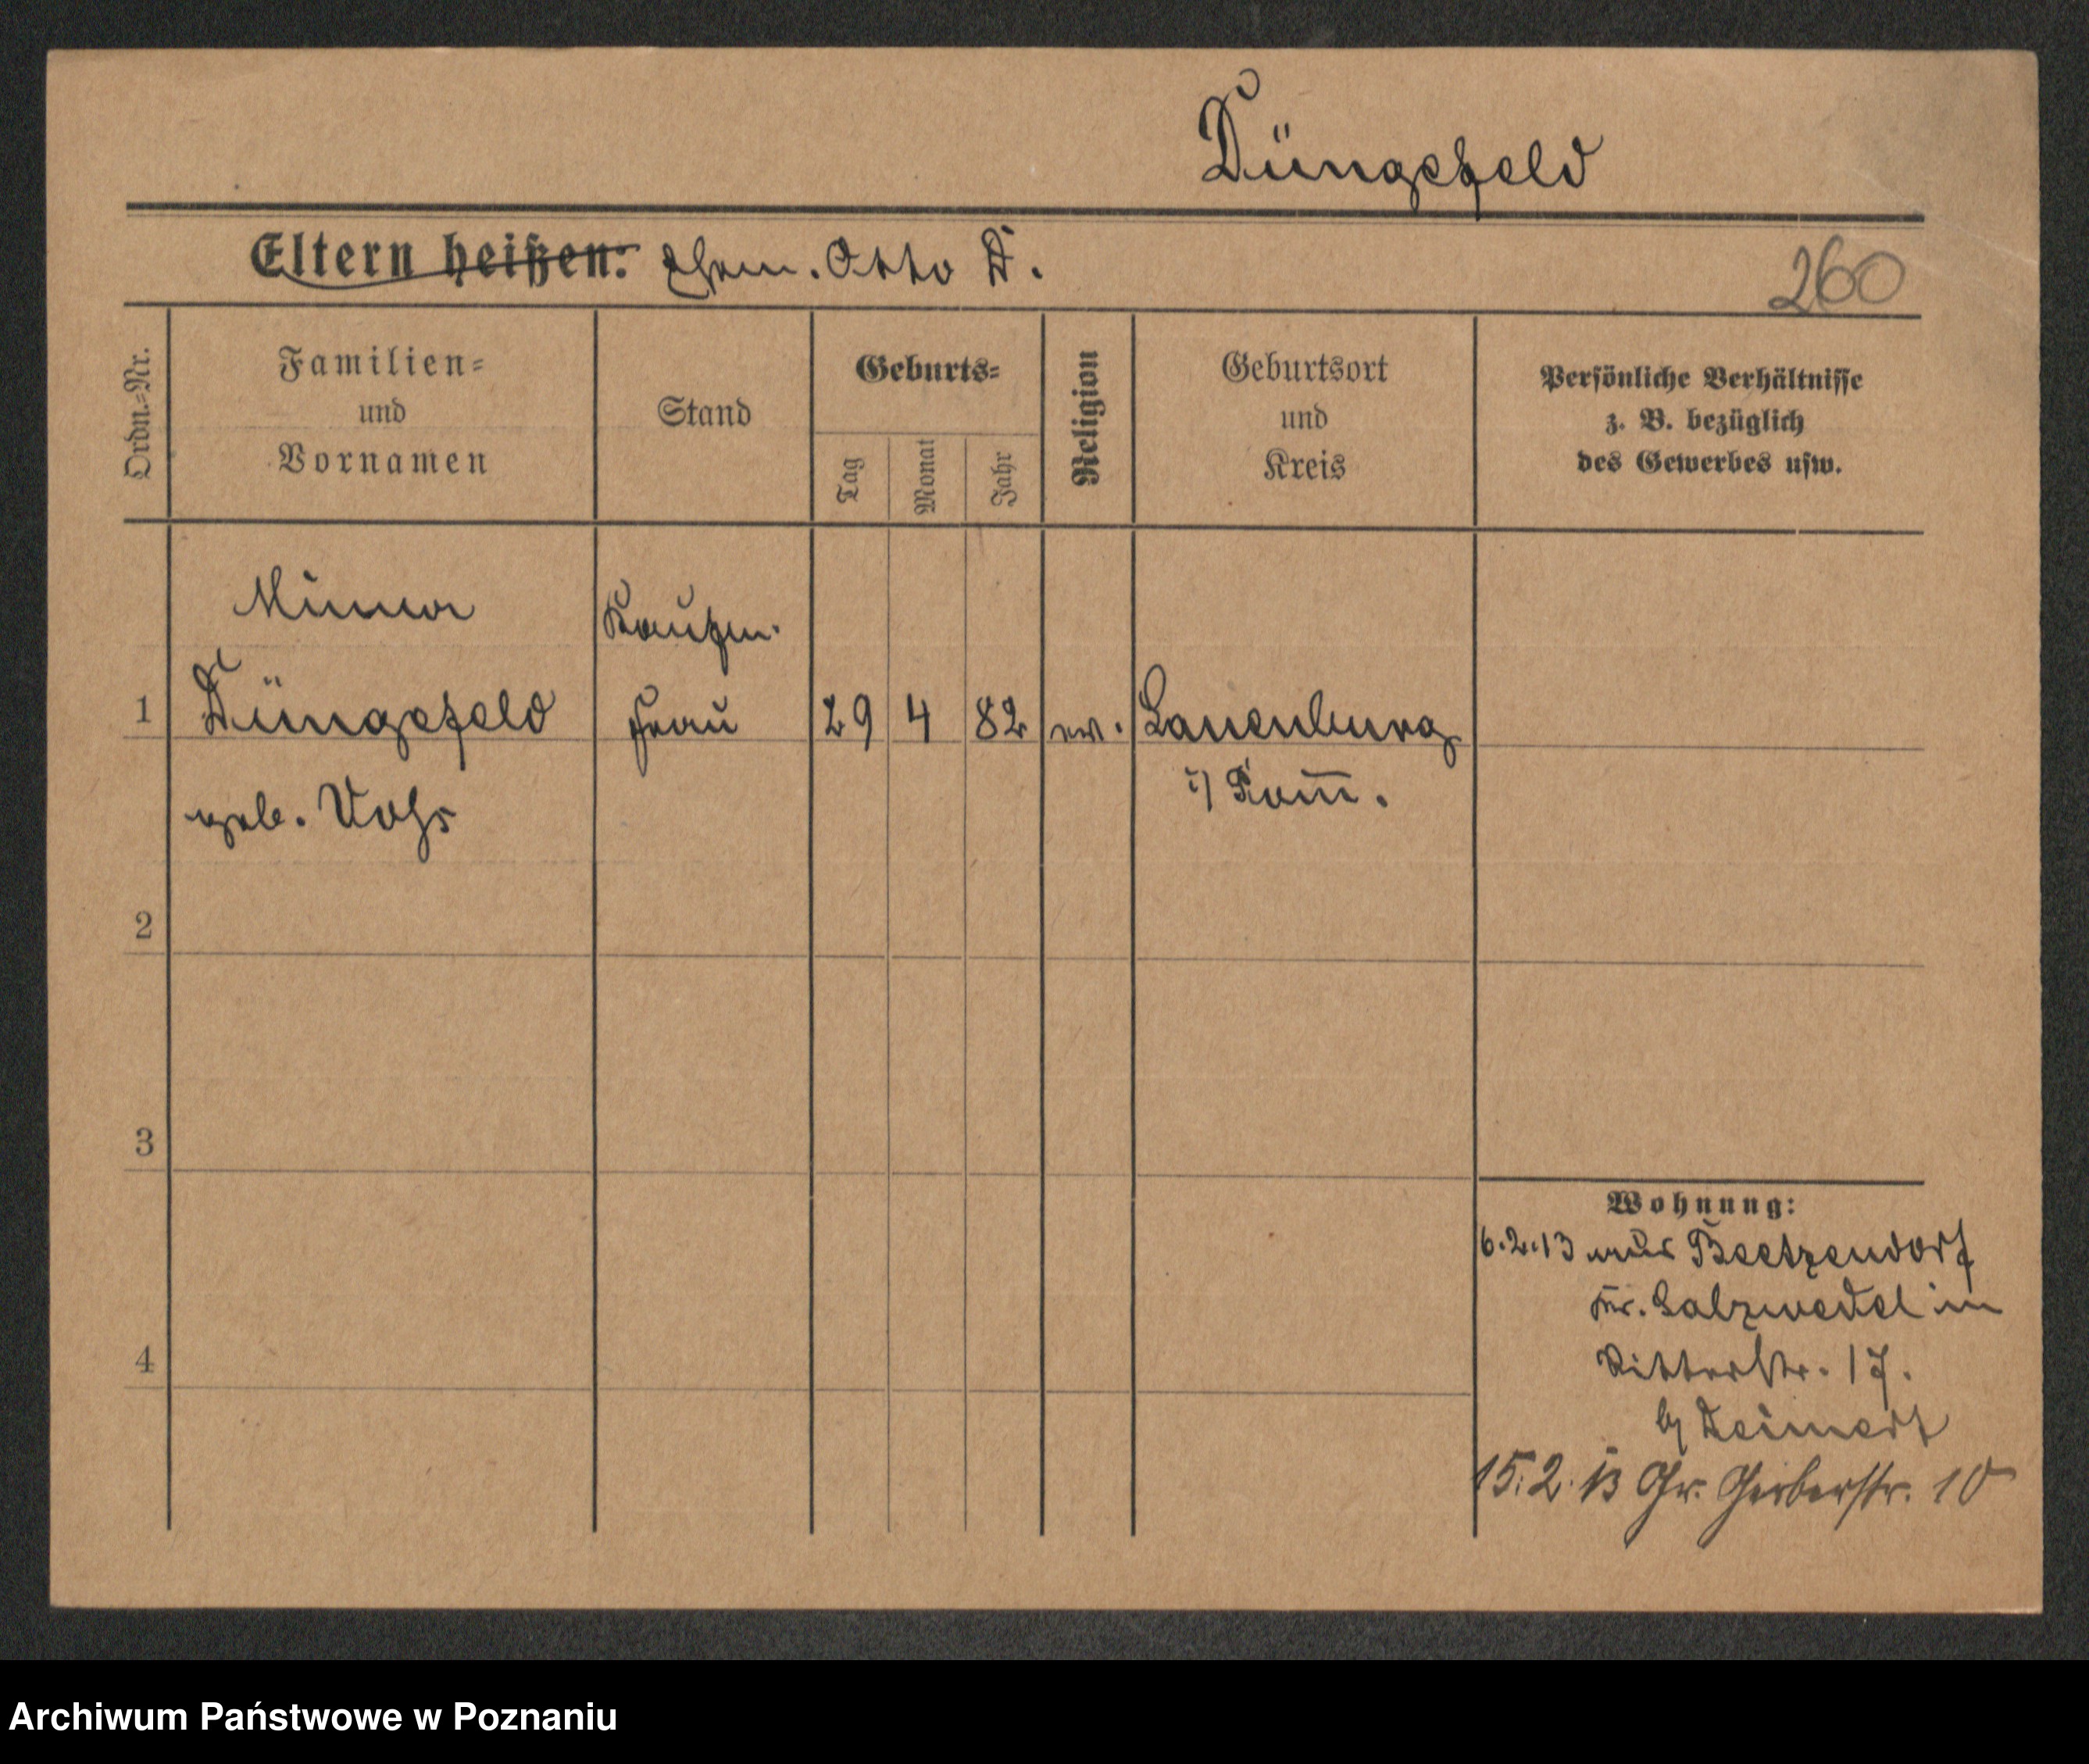 Düngefeld
Eltern heißen: Ehem. Otto D.
260
Ordn.=Nr.
Familien=
und
Vornamen
Stand
Geburts=
Tag
Monat
Jahr
Religion
Geburtsort
und
Kreis
Persönliche Verhältnisse
z. B. bezüglich
des Gewerbes usw.
Minna
Kaufm.
1 Düngefeld Frau 29 4 82 ev. Lauenburg
i/ Pom̅.
geb. Voss
2
3
Wohnung:
6.2.13 aus Beetzendorf
Kr. Salzwedel in
4
Ritterstr. 17.
b/
15.2.13 Gr. Gerberstr. 10
Archiwum Państwowe w Poznaniu